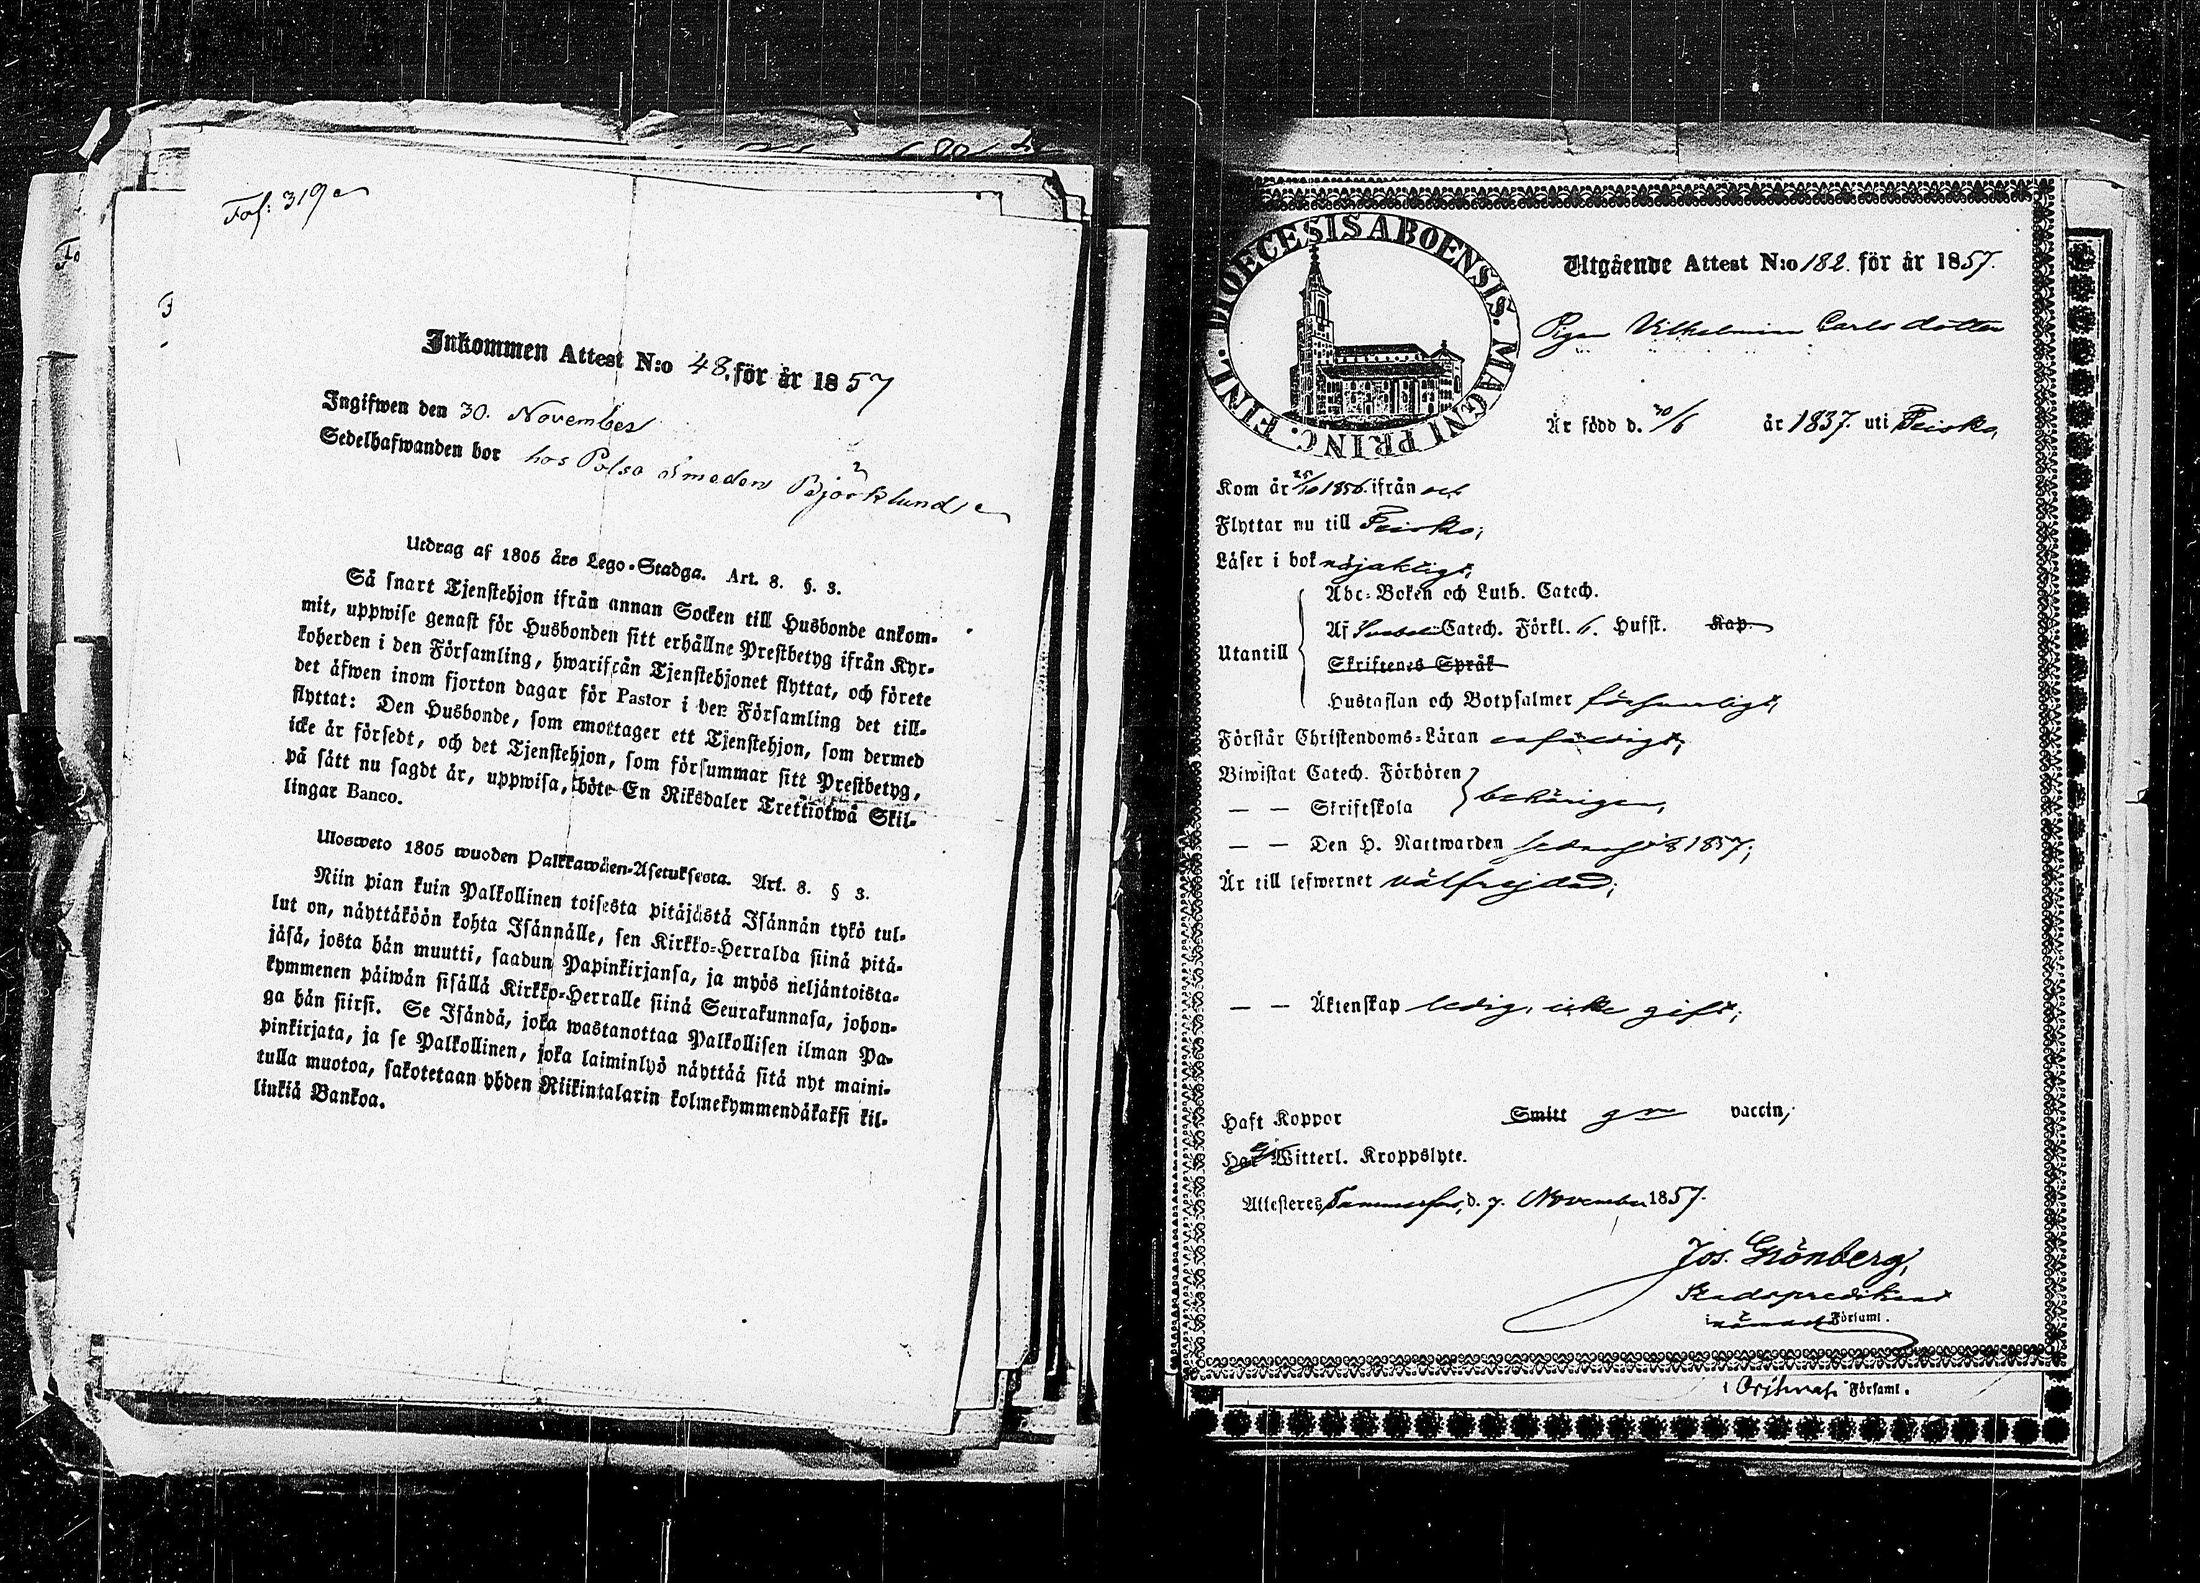 Fol: 319.
Inkommen Attest N:o 48. för år 1857
Ingifwen den 30. November
Sedelhafwanden bor hos Polso Smeden Björklund
Utdrag af 1805 års Lego-Stadga. Art. 8. §. 3.
Så snart Tjenstehjon ifrån annan Socken till Husbonde ankom-
mit, uppwise genast för Husbonden sitt erhållne Prestbetyg ifrån Kyr-
koherden i den Församling, hwarifrån Tjenstehjonet flyttat, och förete
det äfwen inom fjorton dagar för Pastor i den Församling det till-
flyttat: Den Husbonde, som emottager ett Tjenstehjon, som dermed
icke är försedt, och det Tjenstehjon, som försummar sitt Prestbetyg,
på sätt nu sagdt är, uppwisa, böte En Riksdaler Trettiotwå Skil-
lingar Banco.
Ulosweto 1805 wuoden Palkkawäen-Asetuksesta. Art. 8. § 3.
Niin pian kuin Palkollinen toisesta pitäjästä Isännän tykö tul-
lut on, näyttäköön kohta Isännälle, sen Kirkko-Herralda siinä pitä-
jäsä, josta hän muutti, saadun Papinkirjansa, ja myös neljäntoista-
kymmenen päiwän sisällä Kirkko-Herralle siinä Seurakunnasa, johon-
ga hän siirsi. Se Isändä, joka wastanottaa Palkollisen ilman Pa-
pinkirjata, ja se Palkollinen, joka laiminlyö näyttää sitä nyt maini-
tulla muotoa, sakotetaan yhden Riikintalarin kolmekymmendäkaksi kil-
linkiä Bankoa.
DIOECESIS ABOENSIS. MAGNI PRINC. FINL.
Utgående Attest N:o 182. för år 1857.
Pigan Vilhelmina Carlsdotter
Är född d. 30/6 år 1837. uti Poisko,
Kom år 25/10 1856. ifrån
Flyttar nu till Poisko;
Läser i bok nöjaktigt,
Utantill
Abc-Boken och Luth. Catech.
Af Catech. Förkl. 6. Hufst. Kap.
Skriftenes Språk
Hustaflan och Botpsalmer försvarligt,
Förstår Christendoms-Läran enfaldigt,
Biwistat Catech. Förhören
— — Skriftskola behörigen,
— — Den H. Nattwarden 1857;
Är till lefwernet välfrejdad;
— — Äktenskap ledig, icke gift;
Haft Koppor Smitt gm vaccin,
Har Witterl. Kroppslyte.
Attesteres Tammerfors, d. 7. November 1857.
Jos. Grönberg,
Stadspredikant
i nämnde Församl.
i Församl.